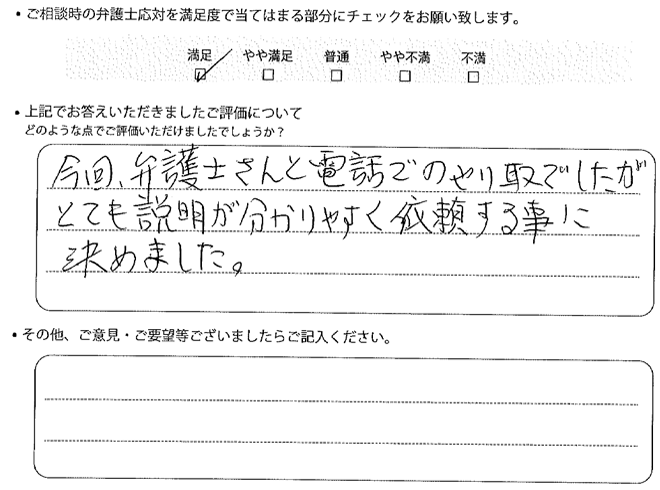 ・ご相談時の弁護士応対を満足度で当てはまる部分にチェックをお願い致します。
満足 やや満足 普通 やや不満 不満
・上記でお答えいただきましたご評価について
どのような点でご評価いただけましたでしょうか?
今回、弁護士さんと電話でのやり取でしたが
とても説明が分かりやすく依頼する事に
決めました。
・その他、ご意見・ご要望等ございましたらご記入ください。